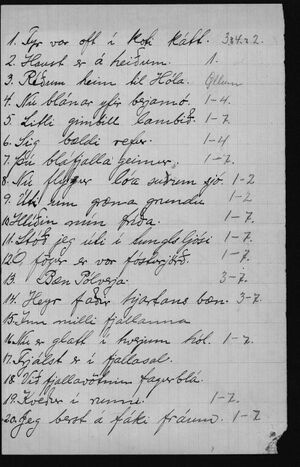 1. Fyr var oft í koti kátt. 3 4.2.
2. Haust er á heiðum. 1.
3. Ríðum heim til Hóla. Öllum
4. Nú blánar yfir berjamó. 1-4.
5. Litli gimbill lambið. 1-7
6. Stig bældi refer. 1-4
7. Þú bláfjalla geimur. 1-2.
8. Nú flýgur lóa suðrum sjó. 1-2
9. Úti um græna grundu 1-2
10. Hlíðin mín fríða. 1-7.
11. Stóð jeg úti í tungls ljósi 1-7.
12. Ó fögur er vor fósturjörð. 1-7.
13. Bæn Pólverja. 3-7.
14. Heyr faðir hjartans bæn. 3-7.
15. Inn milli fjallanna
16. Nú er glatt í hverjum hól. 1-7.
17. Frjálst er í fjallasal.
18. Við fjallavötnin fagurblá.
19. Kveður í runni. 1-7.
20. Jeg berst á fáki fráum. 1-7